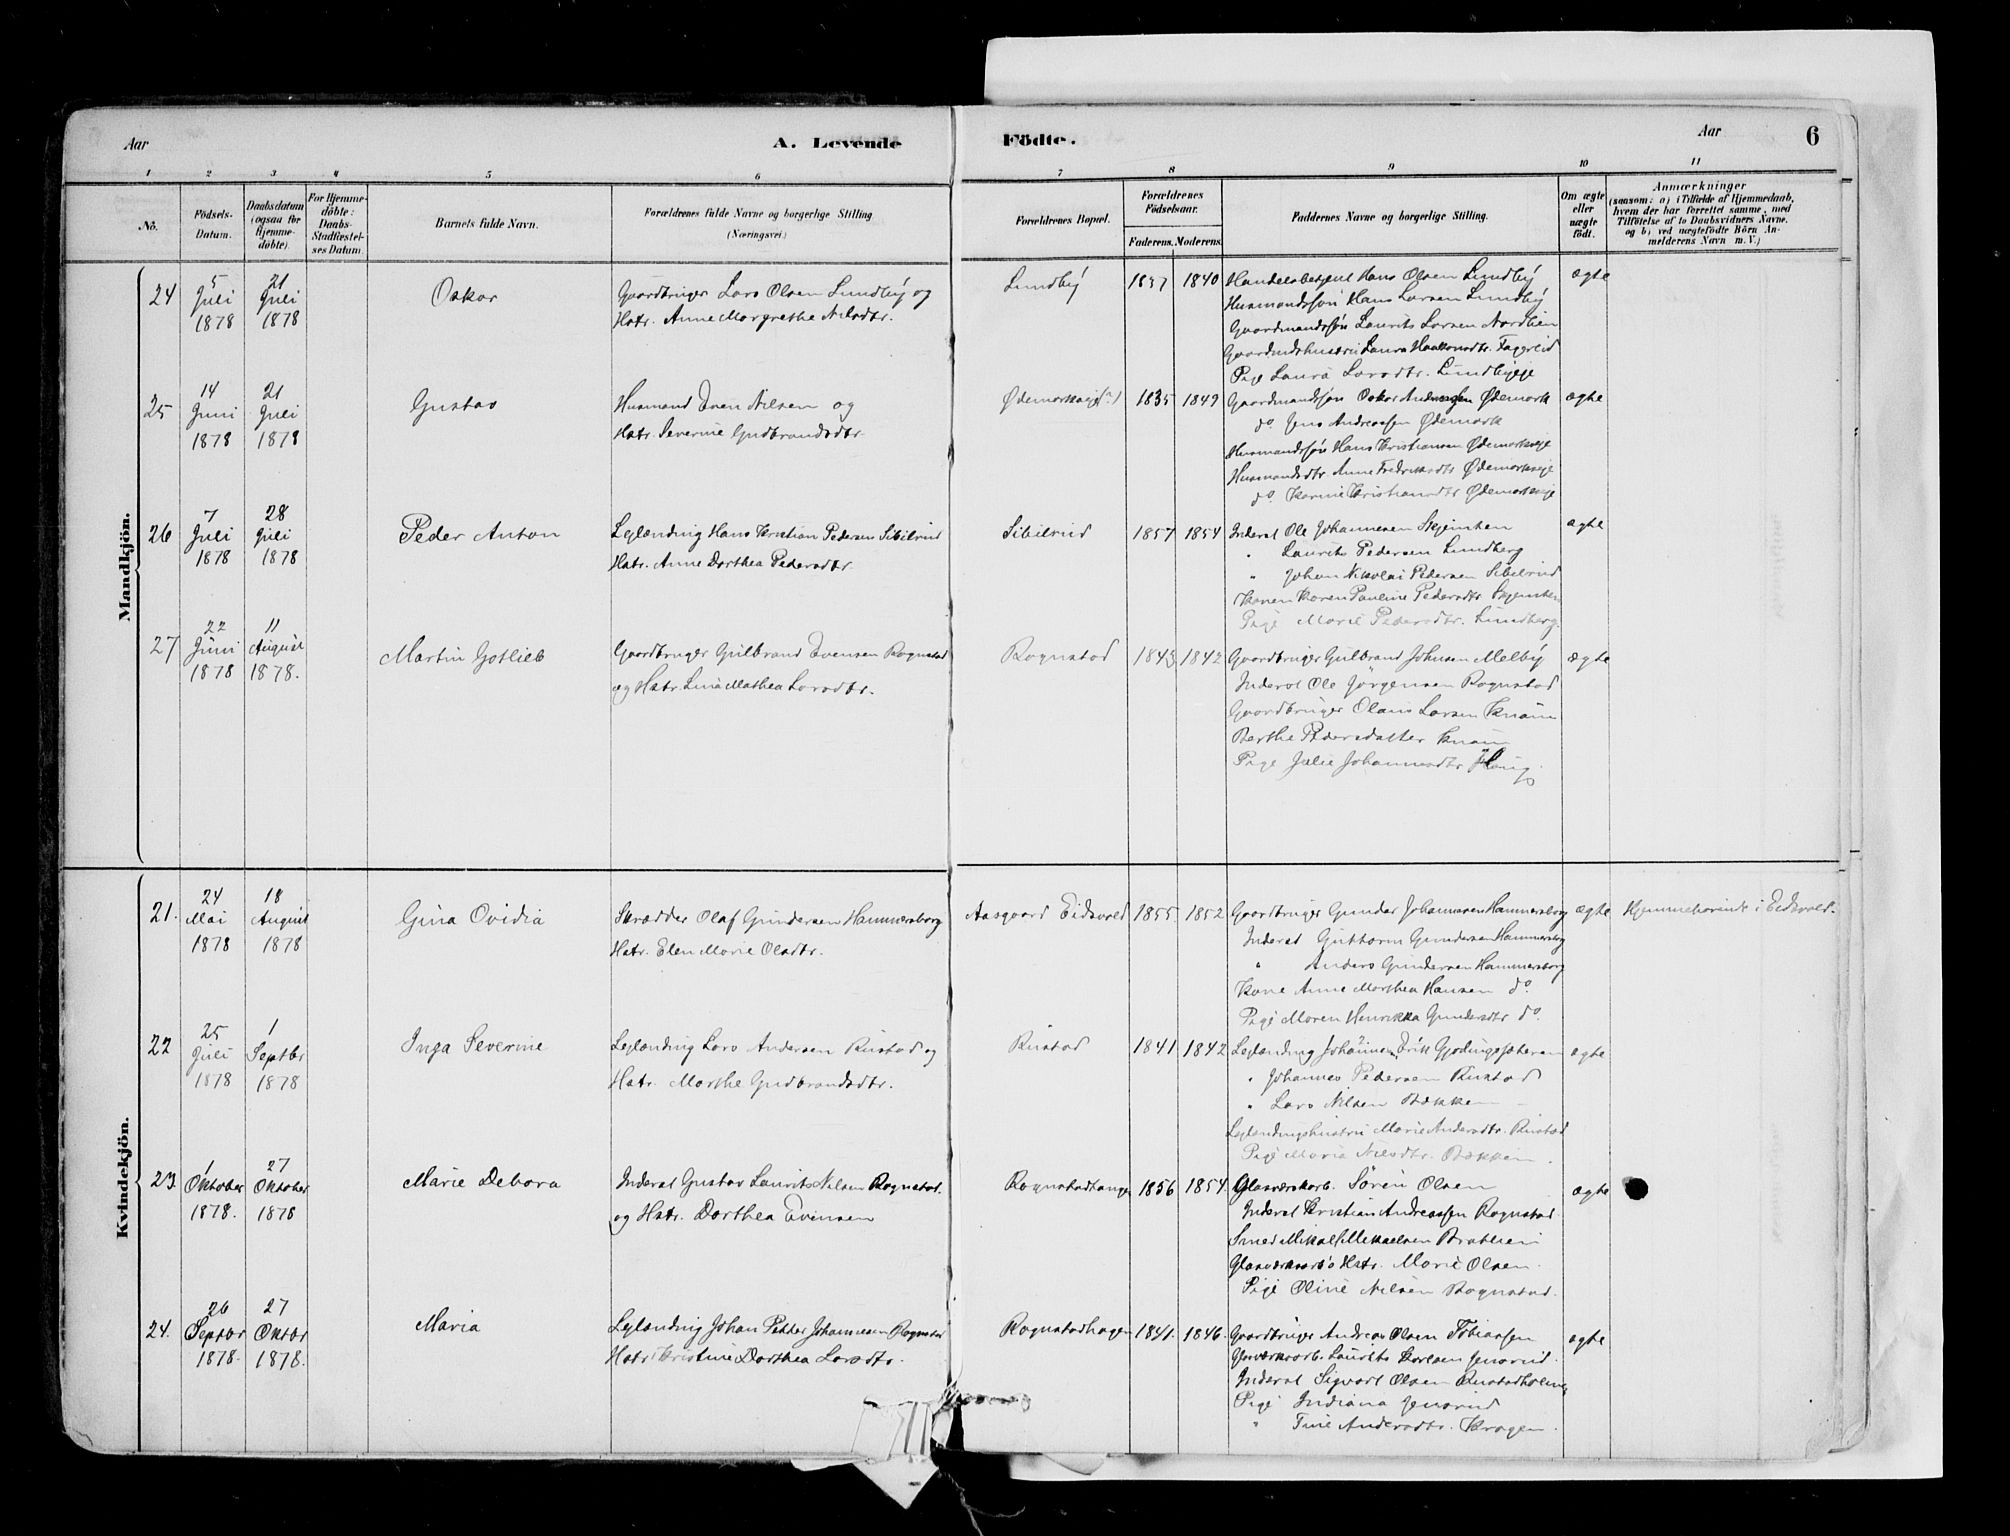 Aar
A. Levende
Födte.
Aar
6
1 2 3 4 5 6 7 8 9 10 11
No.
Födsels-
Datum.
Daabsdatum
(ogsaa for
hjemme-
döbte).
For Hjemme-
döbte:
Daabs-
Stadfæstel-
ses Datum.
Barnets fulde Navn.
Forældrenes fulde Navne og borgerlige Stilling
(Næringsvei)
Forældrenes Bopæl.
Forældrenes
Födselsaar.
Faderens. Moderens.
Faddernes Navne og borgerlige Stilling.
Om ægte
eller
uægte
födt.
Anmærkninger
(saasom: a) i Tilfælde af Hjemmedaab,
hvem der har forrettet samme, med
Tilföielse af to Daabsvidners Navne,
og b) ved uægtefödte Börn An-
melderens Navn m. V.)
Mandkjön.
24
5
Juli
1878
21
Juli
1878
Oskar
Gaardbruger Lars Olsen Lundby og
Hstr. Anne Margrethe Nilsdtr.
Lundby
1837
1840
Handelsbetjent Hans Olsen Lundby
Husmandssön Hans Larsen Lundby
Gaardmandssön Laurits Larsen Nordlien
Laura Haakonsdtr.
Pige Laura Larsdtr. Lundbyeje
ægte
25
14
Juni
1878
21
Juli
1878
Gustav
Husmand Even Nilsen og
Hstr. Severine Gudbrandsdtr.
1835
1849
Gaardmandssön Oskar Ødemark
do. Jens Andreassen Ødemark
Husmandssön Hans Kristiansen Ødemarkseje
Husmandsdtr Anne Fredriksdtr Ødemarkseje
do. Karine Kristiansdtr Ødemarkseje
ægte
26
7
Juli
1878
28
Juli
1878
Peder Anton
Leilænding Hans Kristian Pedersen Sibilrud
Hstr. Anne Dorthea Pedersdtr.
Sibilrud
1857
1854
Inderst Ole Johannesen
" Laurits Pedersen Lundberg
" Johan Nikolai Pedersen Sibilrud
Konen Karen Pauline Pedersdtr
Pige Marie Pedersdtr. Lundberg.
ægte
27
22
Juni
1878
11
August
1878.
Martin Gotlieb
Gaardbruger Gulbrand Evensen Rognstad
og Hstr. Lina Mathea Larsdtr.
Rognstad
1843
1842
Gaardbruger Gulbrand Johnsen Melby
Inderst Ole Jörgensen Rognstad
Gaardbruger Olaus Larsen Knain
Berthe Pedersdatter Knain
Pige Julie Johannesdtr. Haug.
ægte
Kvindekjön.
21.
24
Mai
1878
18
August
1878
Gina Ovidia
Skrædder Olaf Gundersen Hammersborg
Hstr. Elen Marie Olsdtr.
Aasgaard Eidsvold
1855
1852
Gaardbruger Gunder Johannesen Hammersborg
Inderst Guttorm Gundersen Hammersborg
" Anders Gundersen Hammersborg
Kone Anne Marthea Hansen do.
Pige Maren Henrikka Gundersdtr do.
ægte
Hjemmehörende i Eidsvold.
22
25
Juli
1878
1
Septbr
1878
Inga Severine
Leilænding Lars Andersen Rustad og
Hstr. Marthe Gudbrandsdtr.
Rustad
1841
1842
Leilænding
" Johannes Pedersen Rustad
" Lars Nilsen Bækken
Leilændingshustru Marie Andersdtr. Rustad
Pige Maria Nilsdtr. Bækken.
ægte
23.
1
Oktober
1878.
27
Oktober
1878
Marie Debora
Inderst Gustav Laurits Nilsen Rognstad.
og Hstr. Dorthea Evensen
1856
1854.
Glasværksarb. Sören Olsen
Inderst Kristian Andreassen Rognstad
Smed Mikal Mikaelsen Bratlien
Hstr. Marie Olsen.
Pige Oline Nilsen Rognstad.
ægte
24.
26
Septbr
1878.
27
Oktbr
1878.
Maria
Leilænding Johan Petter Johannesen Rognstad
Hstr. Kristine Dorthea Larsdtr.
Rognstadhagen
1841.
1846.
Gaardbruger Andreas Olsen Tobiassen
Laurits Karlsen Jensrud.
Inderst Sigvart Olsen
Pige Indiana Jensrud
" Tine Andersdtr. Kragen.
ægte